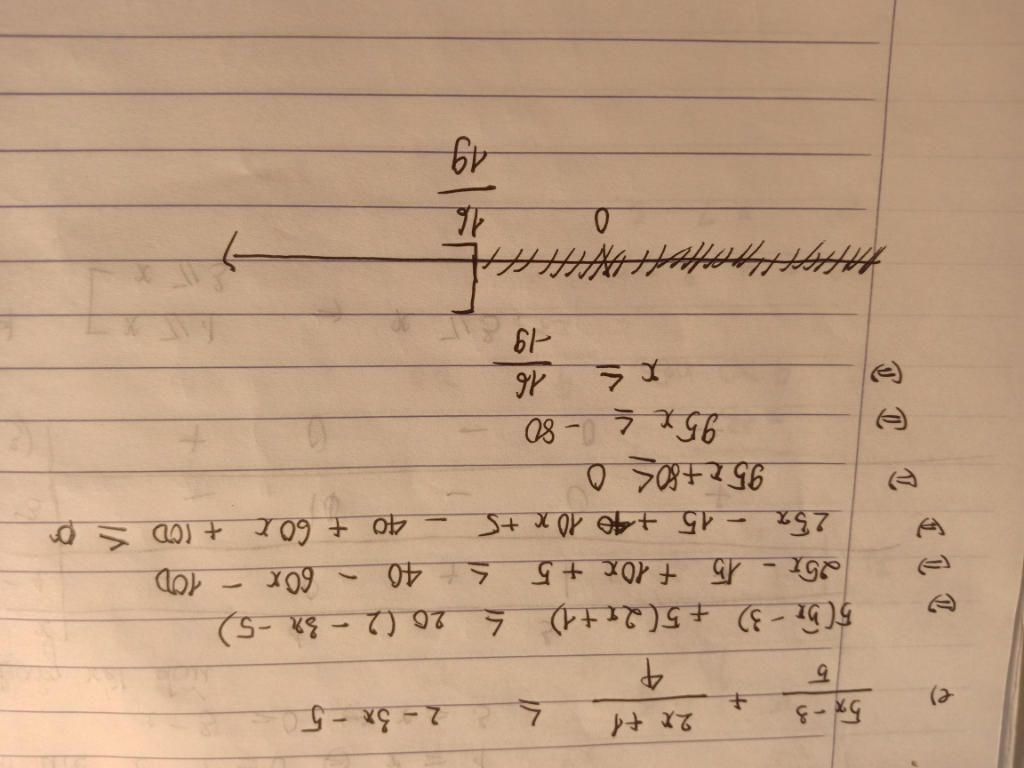 e) \frac{5x-3}{5} + \frac{2x+1}{4} ≤ 2-3x-5
(=) 5(5x-3) + 5(2x+1) ≤ 20(2-3x-5)
(=) 25x - 15 + 10x + 5 ≤ 40 - 60x - 100
(=) 25x - 15 + 10x + 5 - 40 + 60x + 100 ≤ 0
(=) 95x + 80 ≤ 0
(=) 95x ≤ -80
(=) x ≤ \frac{16}{-19}
0 \frac{16}{19}